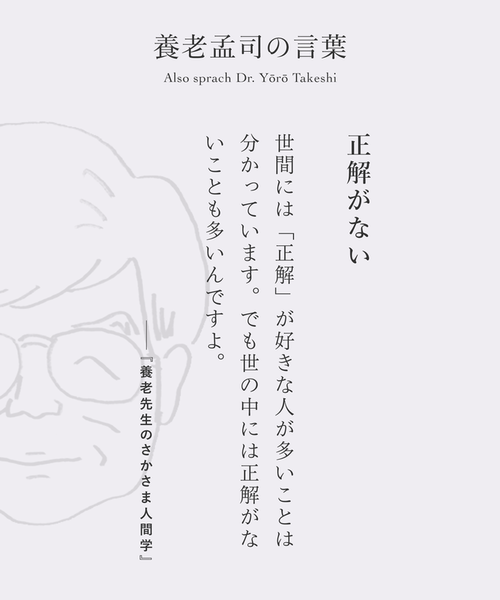 養老孟司の言葉
Also sprach Dr. Yōrō Takeshi
正解がない
世間には「正解」が好きな人が多いことは
分かっています。でも世の中には正解がな
いことも多いんですよ。
──『養老先生のさかさま人間学』